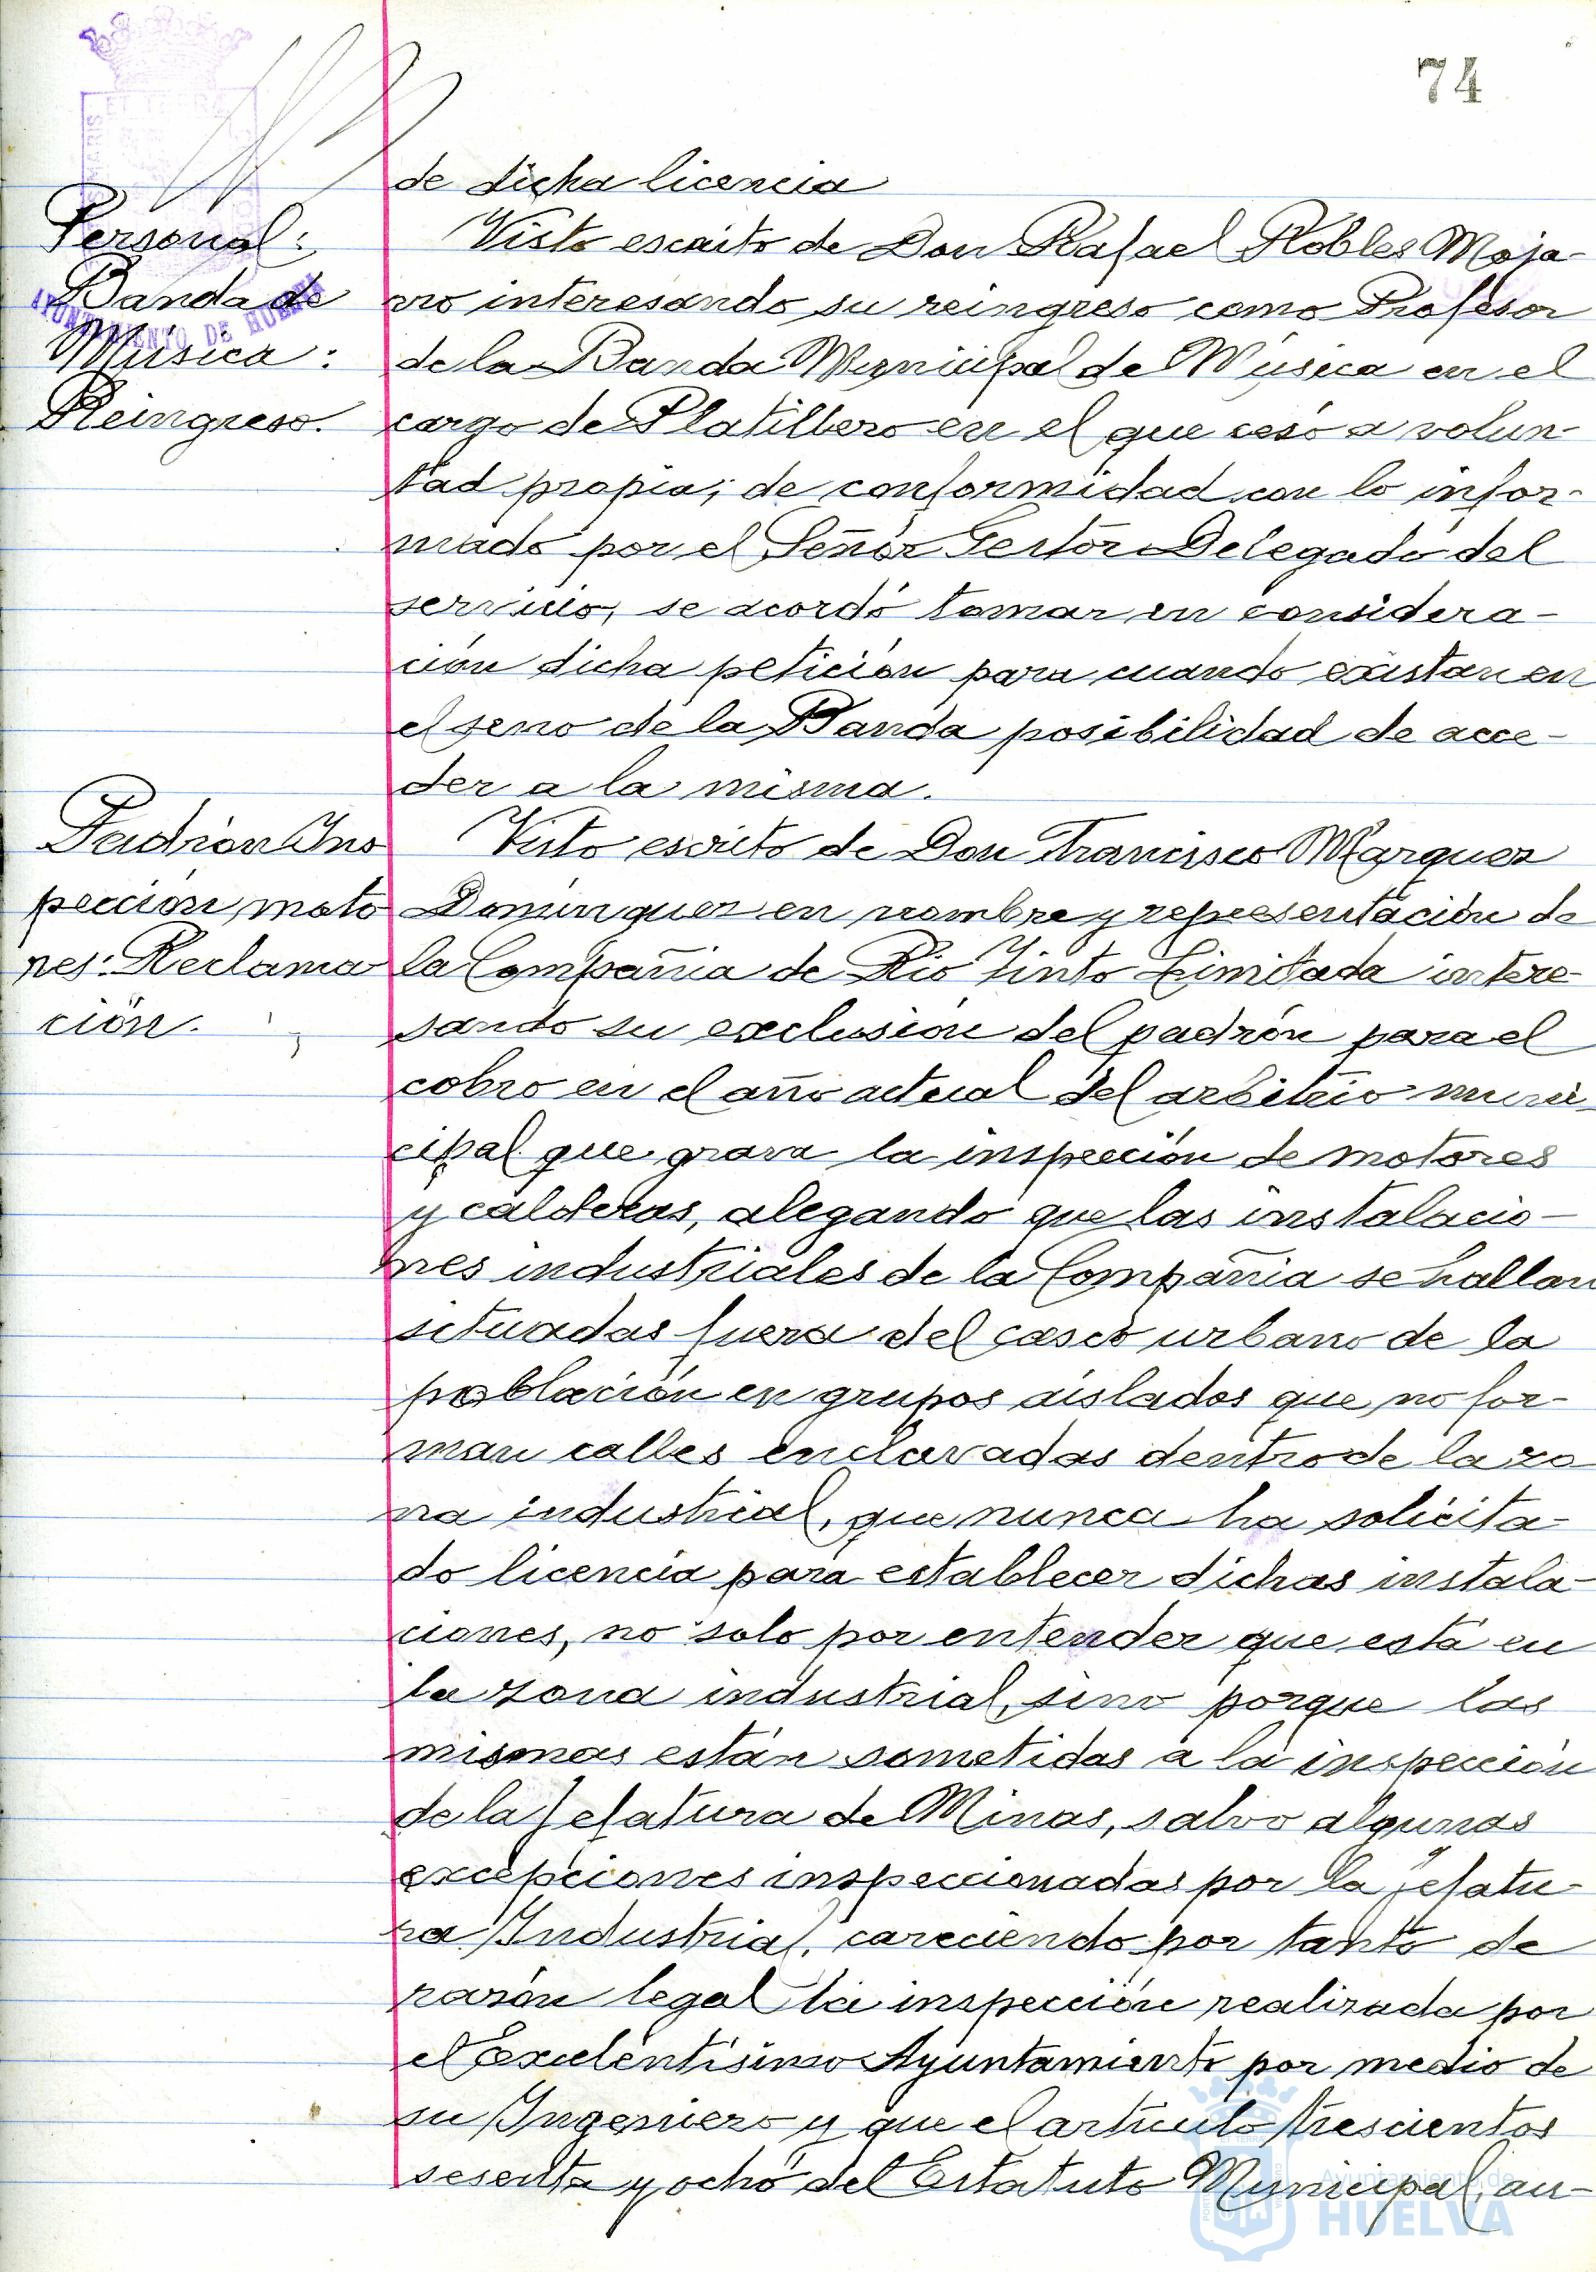 74
de dicha licencia
Personal:
Banda de
Música:
Reingreso.
Visto escrito de Don Rafael Robles Moja-
rro interesando su reingreso como Profesor
de la Banda Municipal de Musica en el
cargo de Platillero en el que cesó a volun-
tad propia; de conformidad con lo infor-
mado por el Señor Gestor Delegado del
servicio, se acordó tomar en considera-
ción dicha petición para cuando existan en
el seno de la Banda posibilidad de acce-
der a la misma.
Padrón Ins
pección, moto
res: Reclama
ción.
Visto escrito de Don Francisco Marquez
Dominguez en nombre y representación de
la Compañia de Rio Tinto Limitada intere-
sando su exclusión del padrón para el
cobro en el año actual del arbitrio muni-
cipal que grava la inspección de motores
y calderas, alegando que las instalacio-
nes industriales de la Compañia se hallan
situadas fuera del casco urbano de la
población en grupos aislados que no for-
man calles enclavadas dentro de la zo
na industrial, que nunca ha solicita-
do licencia para establecer dichas instala-
ciones, no solo por entender que está en
la zona industrial, sino porque las
mismas están sometidas a la inspección
de la Jefatura de Minas, salvo algunas
excepciones inspeccionadas por la Jefatu-
ra Industrial, careciendo por tanto de
razón legal la inspección realizada por
el Excelentísimo Ayuntamiento por medio de
su Ingeniero y que el articulo trescientos
sesenta y ocho del Estatuto Municipal, au-
AYUNTAMIENTO DE HUELVA
Ayuntamiento de
HUELVA